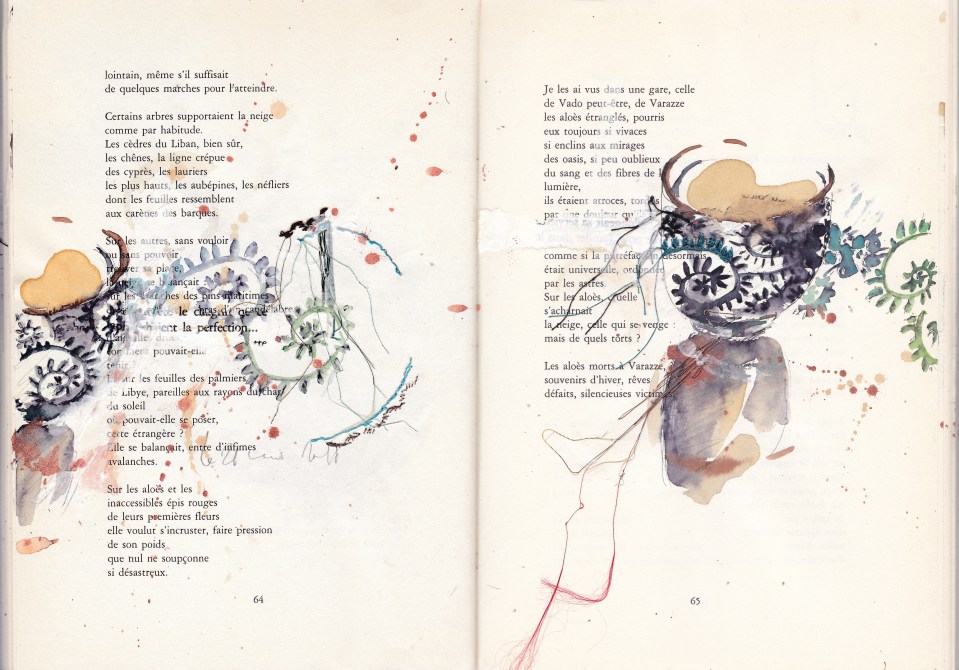 lointain, même s'il suffisait
de quelques marches pour l'atteindre.
Certains arbres supportaient la neige
comme par habitude.
Les cèdres du Liban, bien sûr,
les chênes, la ligne crépue
des cyprès, les lauriers
les plus hauts, les aubépines, les néfliers
dont les feuilles ressemblent
aux carènes des barques.
Sur les autres, sans vouloir
ou sans pouvoir
trouver sa place,
balançait
sur les branches des pins maritimes
la perfection...
comment pouvait-elle
tenir ?
les feuilles des palmiers
de Libye, pareilles aux rayons du char
du soleil
où pouvait-elle se poser,
cette étrangère ?
Elle se balançait, entre d'infimes
avalanches.
Sur les aloès et les
inaccessibles épis rouges
de leurs premières fleurs
elle voulut s'incruster, faire pression
de son poids
que nul ne soupçonne
si désastreux.
64
Je les ai vus dans une gare, celle
de Vado peut-être, de Varazze
les aloès étranglés, pourris
eux toujours si vivaces
si enclins aux mirages
des oasis, si peu oublieux
du sang et des fibres de la
lumière,
ils étaient atroces, tordus
par une douleur
comme si la putréfaction désormais
était universelle, ordonnée
par les astres.
Sur les aloès, quelle
s'acharnait
la neige, celle qui se venge :
mais de quels tôrts ?
Les aloès morts à Varazze,
souvenirs d'hiver, rêves
défaits, silencieuses victimes
65